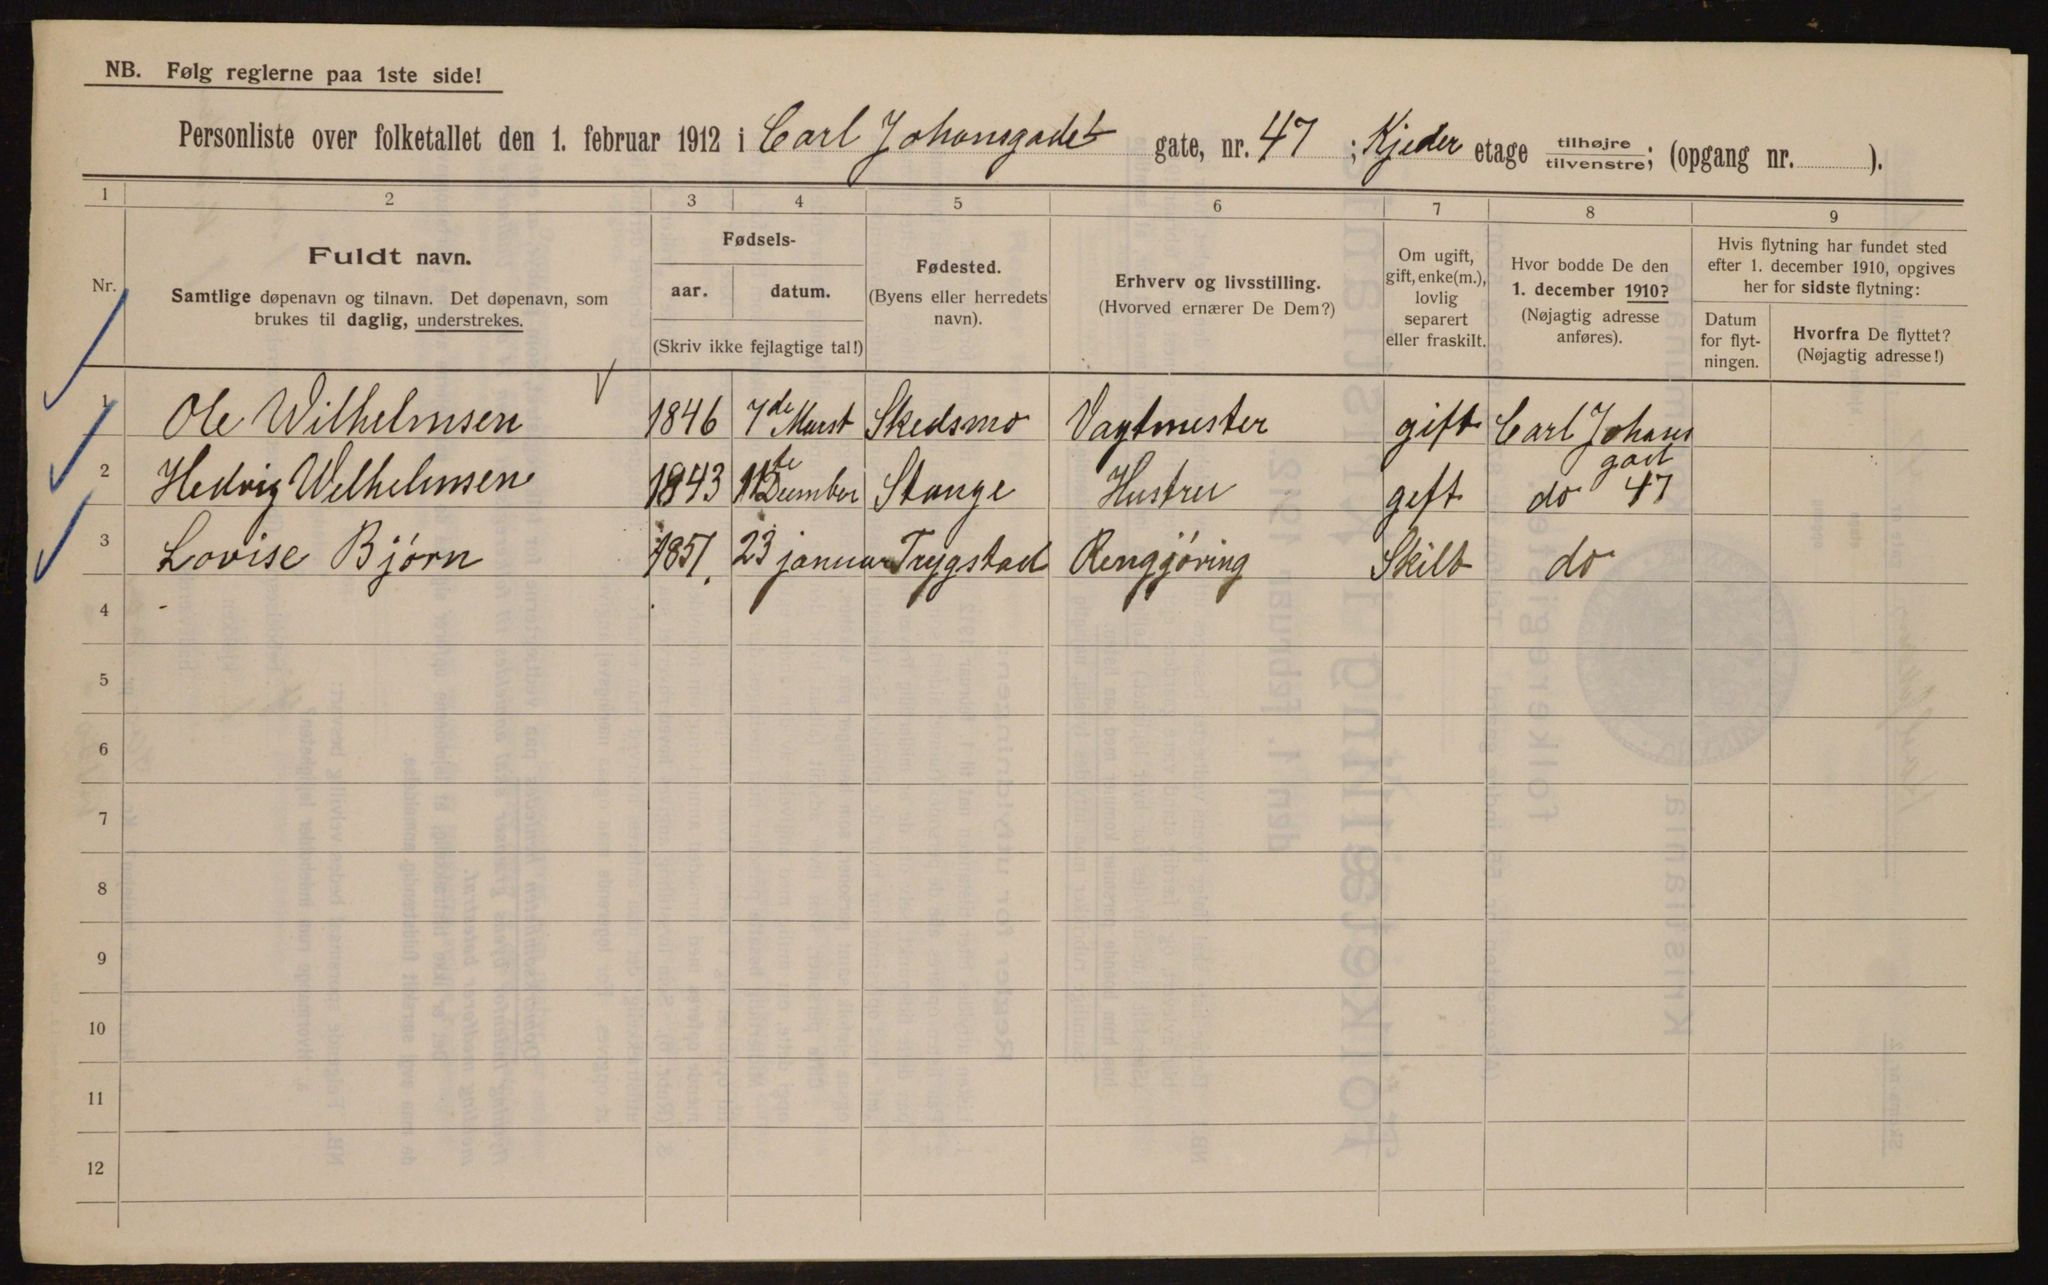 NB. Følg reglerne paa 1ste side!
Personliste over folketallet den 1. februar 1912 i Carl Johansgade gate, nr. 47 ; Kjeder etage tilhøjre/tilvenstre; (opgang nr. ).
1 2 3 4 5 6 7 8 9
Nr.
Fuldt navn.
Samtlige døpenavn og tilnavn. Det døpenavn, som
brukes til daglig, understrekes.
Fødsels-
aar. datum.
(Skriv ikke fejlagtige tal!)
Fødested.
(Byens eller herredets
navn).
Erhverv og livsstilling.
(Hvorved ernærer De Dem?)
Om ugift,
gift, enke(m.),
lovlig
separert
eller fraskilt.
Hvor bodde De den
1. december 1910?
(Nøjagtig adresse
anføres).
Hvis flytning har fundet sted
efter 1. december 1910, opgives
her for sidste flytning:
Datum
for flyt-
ningen.
Hvorfra De flyttet?
(Nøjagtig adresse!)
1 Ole Wilhelmsen 1846 7de Marst Skedsmo Vagtmester gift Carl Johans
gad
2 Hedvig Welhelmsen 1843 11te Desember Stange Hustru geft do 47
3 Lovise Bjørn 1851. 23 januar Trygstad Rengjøring Skilt do
4
5
6
7
8
9
10
11
12